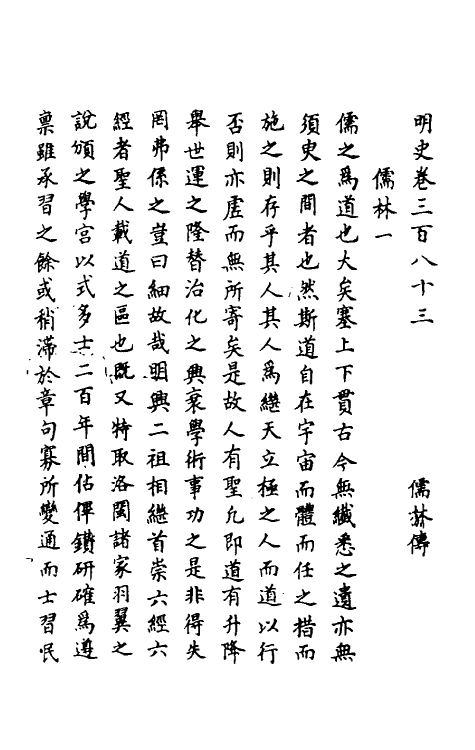 明史卷三百八十三 儒林傳
儒林一
儒之爲道也大矣塞上下貫古今無纖悉之遺亦無
須臾之間者也然斯道自在宇宙而體而任之措而
施之則存乎其人其人爲繼天立極之人而道以行
否則亦虛而無所寄矣是故人有聖凡即道有升降
舉世運之隆替治化之興衰學術事功之是非得失
罔弗係之豈曰細故哉明興二祖相繼首崇六經六
經者聖人載道之區也既又特取洛閩諸家羽翼之
說頒之學宮以式多士二百年間佔俾鑽研確爲遵
稟雖承習之餘或稍滯於章句寡所變通而士習民